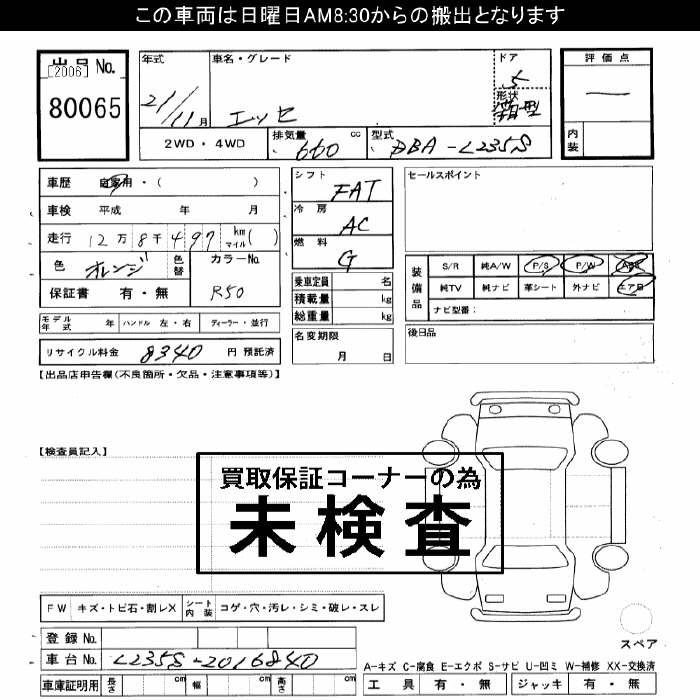 この車両は日曜日AM8:30からの搬出となります
出品No. [2006]
80065
年式 車名・グレード ドア 評価点
21/11月 エッセ 5 ―
形状 箱型
2WD・4WD 排気量 660 cc 型式 DBA-L235S 内装
車歴 自家用・( )
車検 平成 年 月
走行 12万8千497 km マイル ( )
色 オレンジ 色替 カラーNo. R50
保証書 有・無
シフト FAT
冷房 AC
燃料 G
乗車定員 名
積載量 kg
総重量 kg
名変期限 月 日
セールスポイント
装備品 S/R 純A/W P/S P/W ABS
純TV 純ナビ 革シート 外ナビ エアB
ナビ型番:
後日品
モデル年式 年 ハンドル 左・右 ディーラー・並行
リサイクル料金 8340 円 預託済
【出品店申告欄(不良箇所・欠品・注意事項等)】
【検査員記入】
買取保証コーナーの為
未検査
FW キズ・トビ石・割レX シート内装 コゲ・穴・汚レ・シミ・破レ・スレ
登録No.
車台No. L235S-2016840
車庫証明用 長さ cm 幅 cm 高さ cm
スペア
A-キズ C-腐食 E-エクボ S-サビ U-凹ミ W-補修 XX-交換済
工具 有・無 ジャッキ 有・無